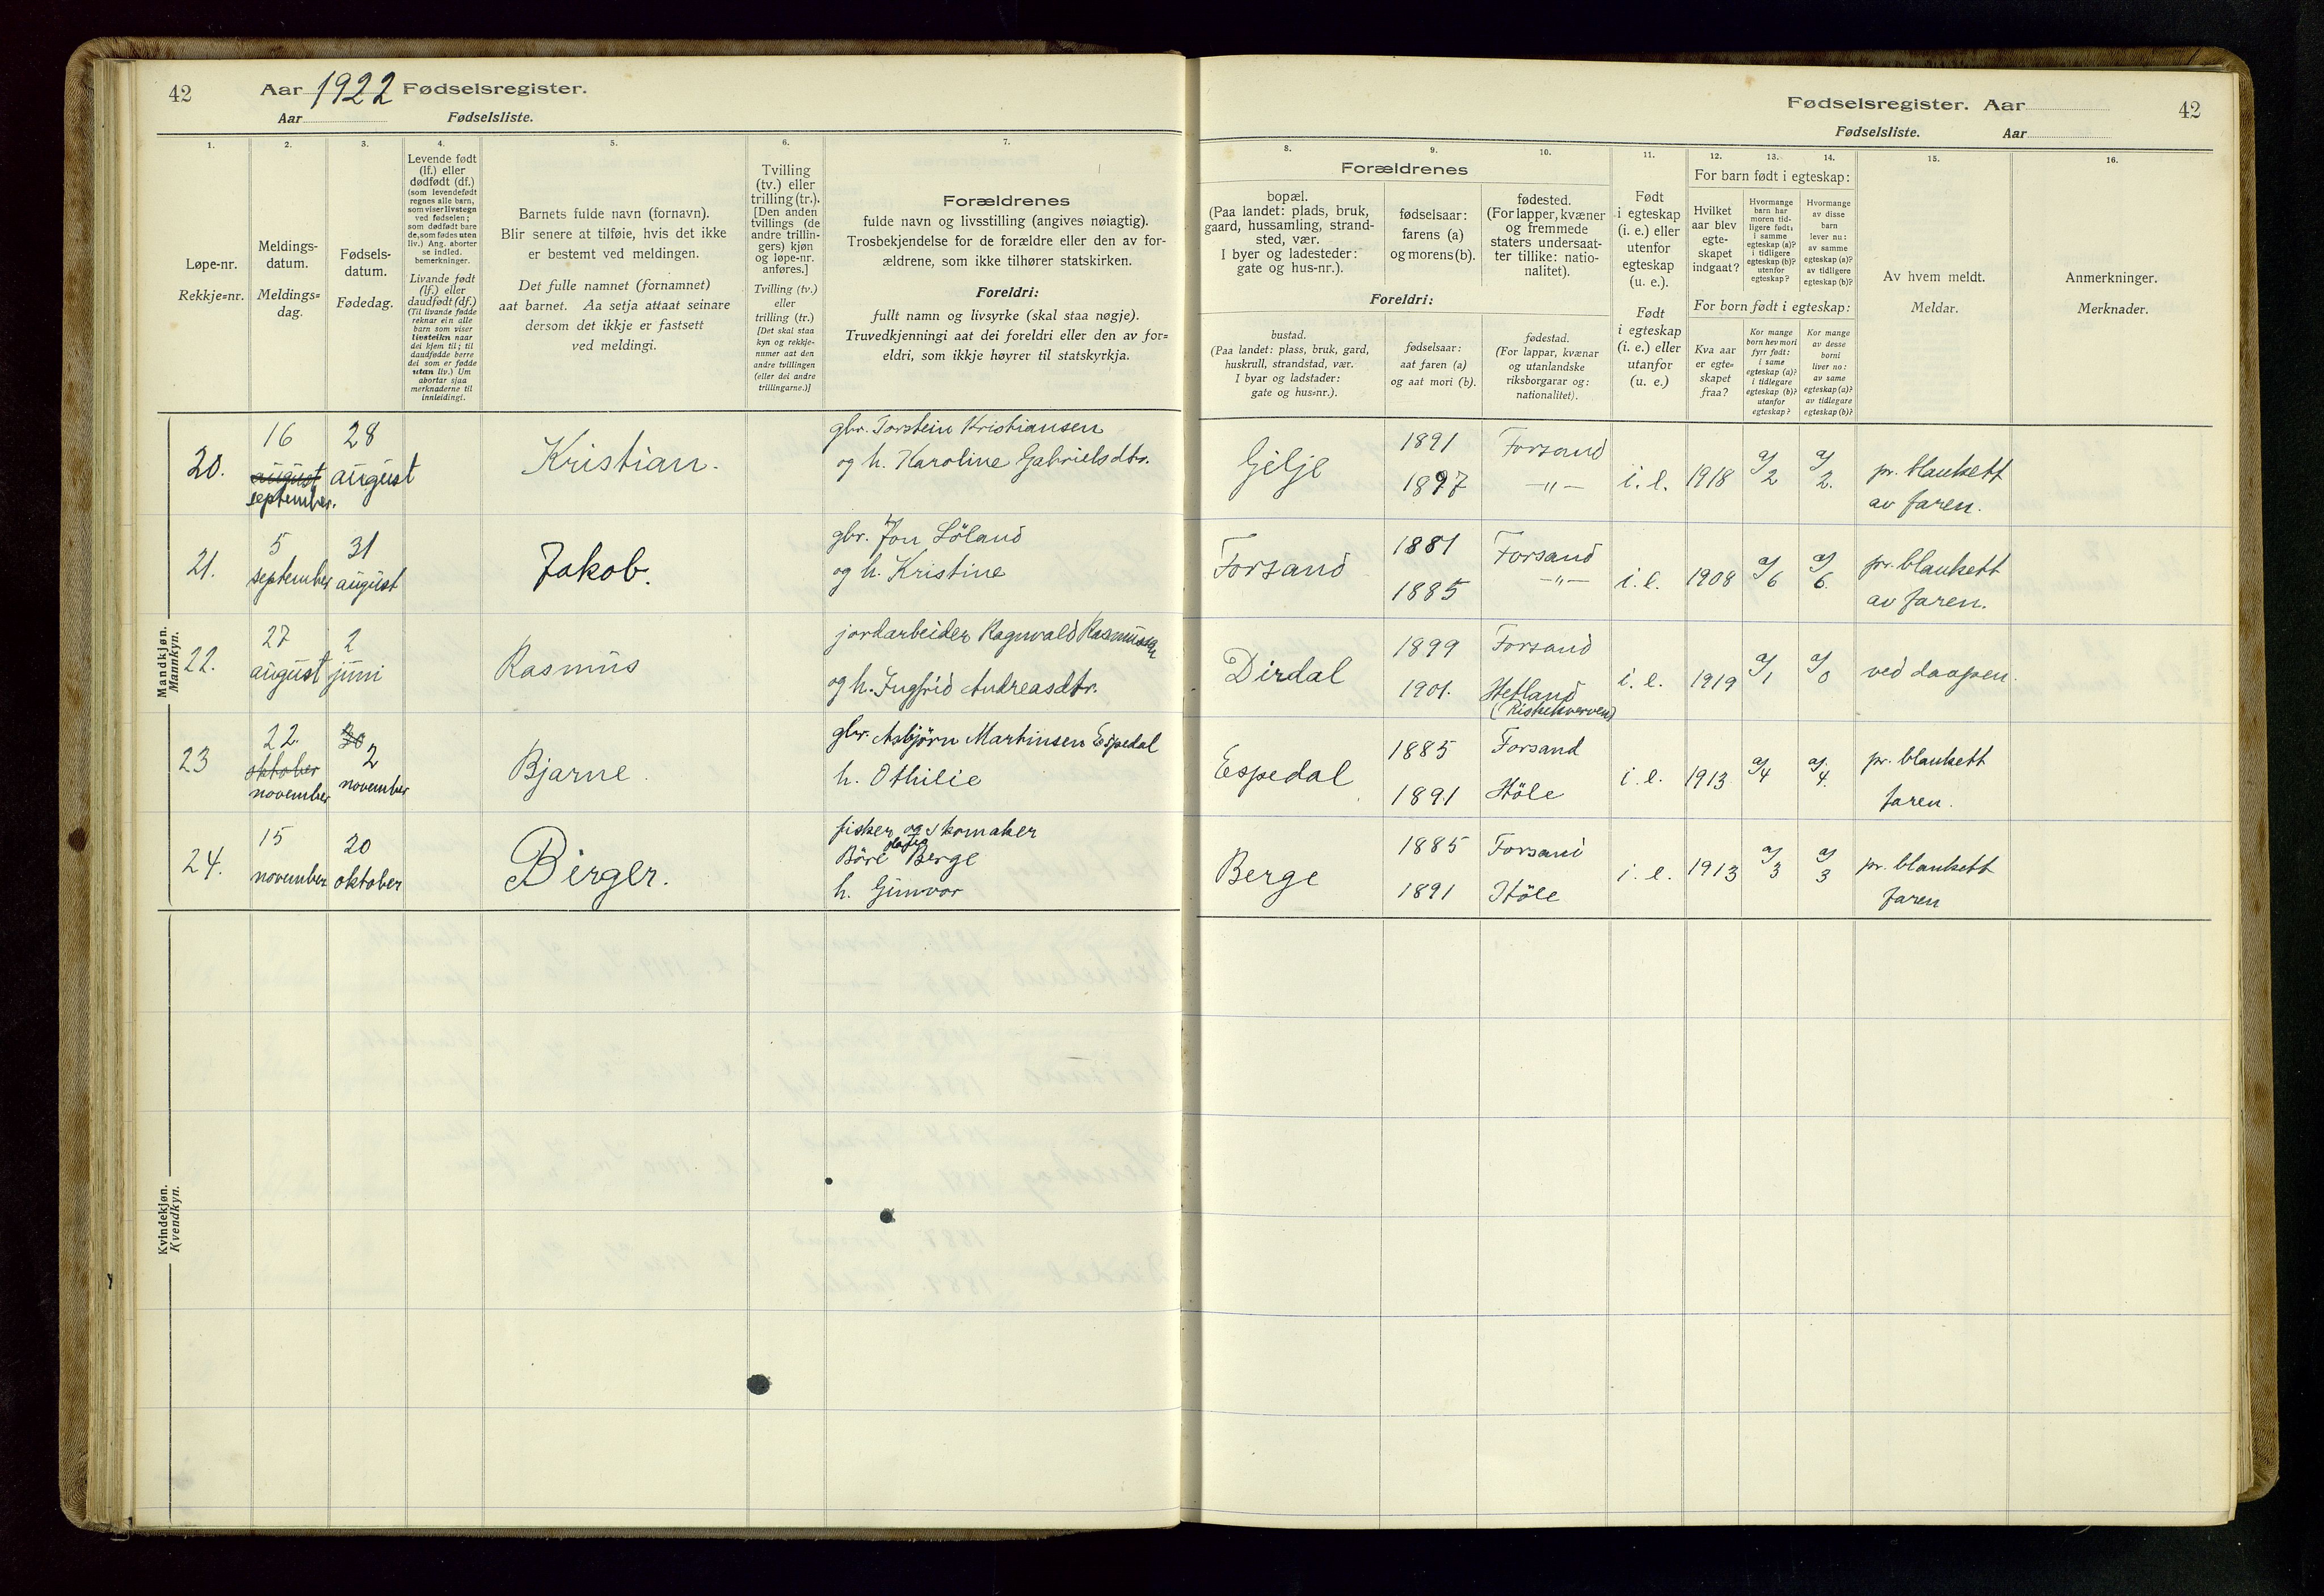 42
Aar 1922 Fødselsregister.
Aar Fødselsliste.
1.
2.
3.
4.
5.
6.
7.
Løpe-nr.
Rekkje=nr.
Meldings-
datum.
Meldings=
dag.
Fødsels-
datum.
Fødedag.
Levende født
(lf.) eller
dødfødt (df.)
(som levendefødt
regnes alle barn,
som viser livstegn
ved fødselen;
som dødfødt bare
de, som fødes uten
liv.) Ang. aborter
se indled.
bemerkninger.
Livande født
(lf.) eller
daudfødt (df.)
(Til livande fødde
reknar ein alle
barn som viser
livsteikn naar
dei kjem til; til
daudfødde berre
dei som er fødde
utan liv.) Um
abortar sjaa
merknaderne til
innleidingi.
Barnets fulde navn (fornavn).
Blir senere at tilføie, hvis det ikke
er bestemt ved meldingen.
Det fulle namnet (fornamnet)
aat barnet. Aa setja attaat seinare
dersom det ikkje er fastsett
ved meldingi.
Tvilling
(tv.) eller
trilling (tr.).
[Den anden
tvillings (de
andre trillin-
gers) kjøn
og løpe-nr.
anføres.]
Tvilling (tv.)
eller
trilling (tr.)
[Det skal staa
kyn og rekkje-
numer aat den
andre tvillingen
(eller dei andre
trillingarne.)]
Forældrenes
fulde navn og livsstilling (angives nøiagtig).
Trosbekjendelse for de forældre eller den av for-
ældrene, som ikke tilhører statskirken.
Foreldri:
fullt namn og livsyrke (skal staa nøgje).
Truvedkjenningi aat dei foreldri eller den av for=
eldri, som ikkje høyrer til statskyrkja.
Mandkjøn.
Mannkyn.
20.
16
august
september.
28
august
Kristian.
gbr. Torstein Kristiansen
og h. Karoline Gabrielsdtr.
21.
5
september
31
august
Jakob.
gbr. Jon Löland
og h. Kristine
22.
27
august
2
juni
Rasmus
jordarbeider Ragnvald Rasmussen
og h. Ingfrid Andreasdtr.
23
22.
oktober
november
30
2
november
Bjarne.
gbr. Asbjörn Martinsen Espedal
h. Othilie
24.
15
november
20
oktober
Birger.
fisker og skomaker
Böre Berge
h. Gunvor
Kvindekjøn.
Kvendkyn.
Fødselsregister. Aar
42
Fødselsliste. Aar
8.
9.
10.
11.
12.
13.
14.
15.
16.
Forældrenes
bopæl.
(Paa landet: plads, bruk,
gaard, hussamling, strand-
sted, vær.
I byer og ladesteder:
gate og hus-nr.).
fødselsaar:
farens (a)
og morens (b).
fødested.
(For lapper, kvæner
og fremmede
staters undersaat-
ter tillike: natio-
nalitet).
Foreldri:
bustad.
(Paa landet: plass, bruk, gard,
huskrull, strandstad, vær.
I byar og ladstader:
gate og hus=nr.).
fødselsaar:
aat faren (a)
og aat mori (b).
fødestad.
(For lappar, kvænar
og utanlandske
riksborgarar og:
nationalitet).
Født
i egteskap
(i. e.) eller
utenfor
egteskap
(u. e.).
Født
i egteskap
(i. e.) eller
utanfor
(u. e.)
For barn født i egteskap:
Hvilket
aar blev
egte-
skapet
indgaat?
Hvormange
barn har
moren tid-
ligere født:
i samme
egteskap (a)?
i tidligere
egteskap (b)?
utenfor
egteskap?
Hvormange
av disse
barn
lever nu:
av samme
egteskap (a)?
av tidligere
egteskap (b)?
For born født i egteskap:
Kva aar
er egte=
skapet
fraa?
Kor mange
born hev mori
fyrr født:
i same
egteskap (a)?
i tidlegare
egteskap (b)?
utanfor
egteskap?
Kor mange
av desse
borni
liver no:
av same
egteskap (a)?
av tidlegare
egteskap (b)?
Av hvem meldt.
Meldar.
Anmerkninger.
Merknader.
Gilje
1891
1897
Forsand
—"—
i. e.
1918
a/2
a/2.
pr. blankett
av faren.
Forsand
1881
1885
Forsand
—"—
i. e.
1908
a/6
a/6.
pr. blankett
av faren.
Dirdal
1899
1901.
Forsand
Hetland
(Riskekverven)
i. e.
1919
a/1
a/0
ved daapen.
Espedal
1885
1891
Forsand
Höle
i. e.
1913
a/4
a/4.
pr. blankett
faren.
Berge
1885
1891
Forsand
Höle
i. e.
1913
a/3
a/3
pr. blankett
faren